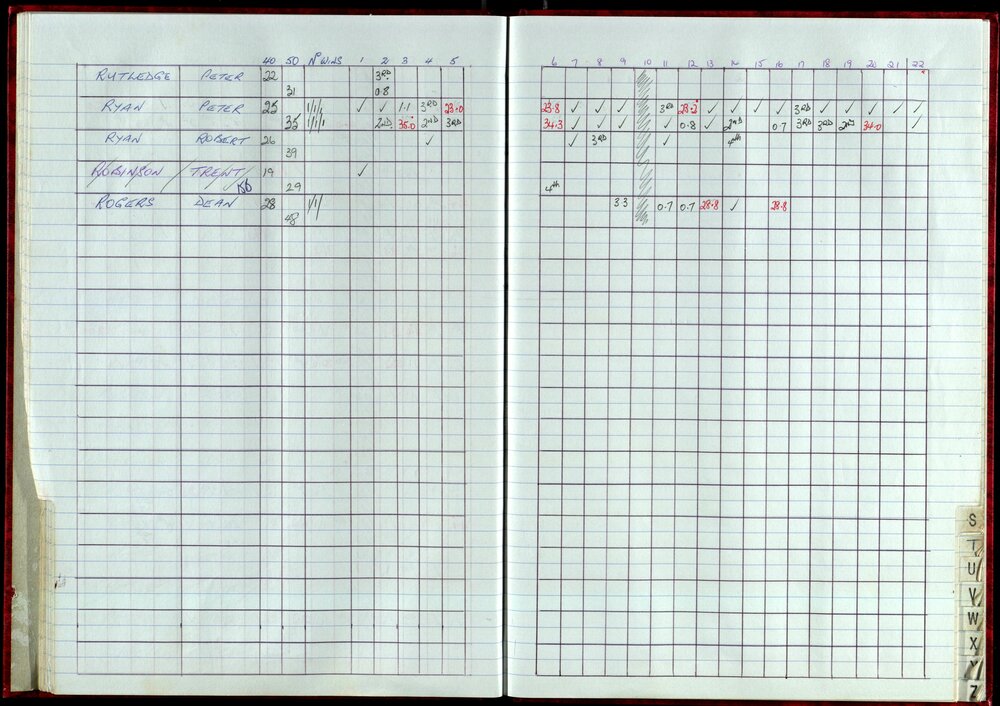 40 50 Nº WINS 1 2 3 4 5 6 7 8 9 10 11 12 13 14 15 16 17 18 19 20 21 22
RUTLEDGE PETER 22 3RD
31 0.8
RYAN PETER 25 ✓ ✓ 1.1 3RD 23.0 23.8 ✓ ✓ ✓ 3RD 23.2 ✓ ✓ ✓ ✓ 3RD ✓ ✓ ✓ ✓ ✓
35 2ND 35.0 2ND 3RD 34.3 ✓ ✓ ✓ ✓ 0.8 ✓ 2ND 0.7 3RD 3RD 2ND 34.0 ✓
RYAN ROBERT 26 ✓ ✓ 3RD ✓ 4th
39
ROBINSON TRENT 19 ✓
29 4th
ROGERS DEAN 28 33 0.7 0.7 28.8 ✓ 28.8
48
S
T
U
V
W
X
Y
Z